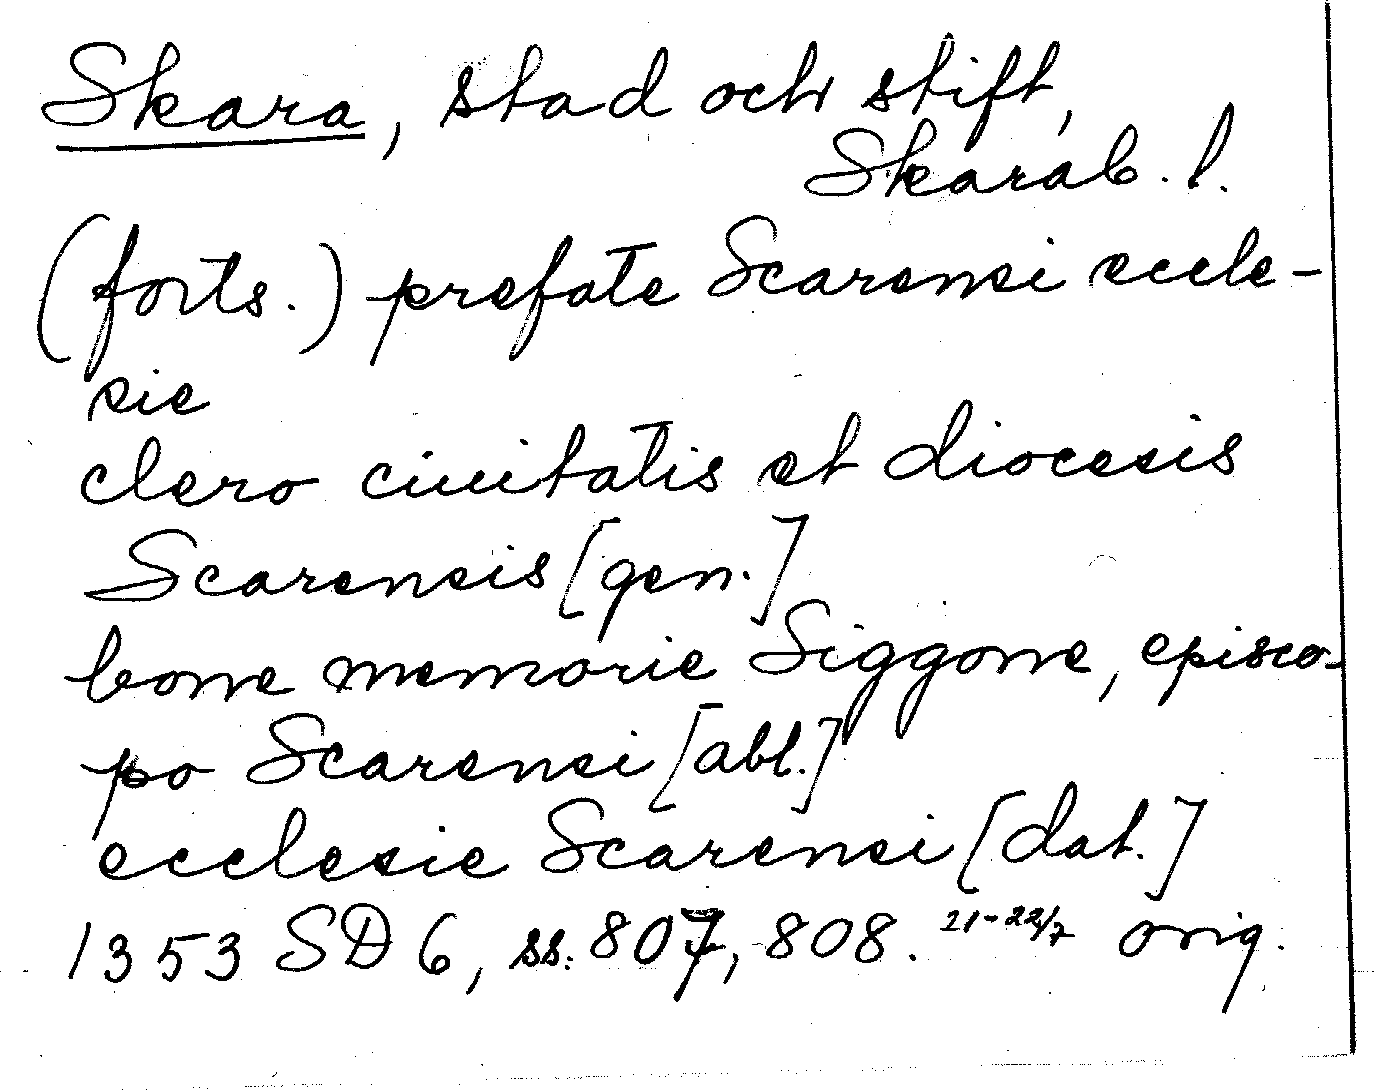 Skara, stad och stift,
Skarab. l.
(forts.) prefate Scarensi eccle-
sie
clero ciuitatis et diocesis
Scarensis [gen.]
bone memorie Siggone, episco-
po Scarensi [abl.]
ecclesie Scarensi [dat.]
1353 SD 6, ss. 807, 808. 21-22/7 orig.